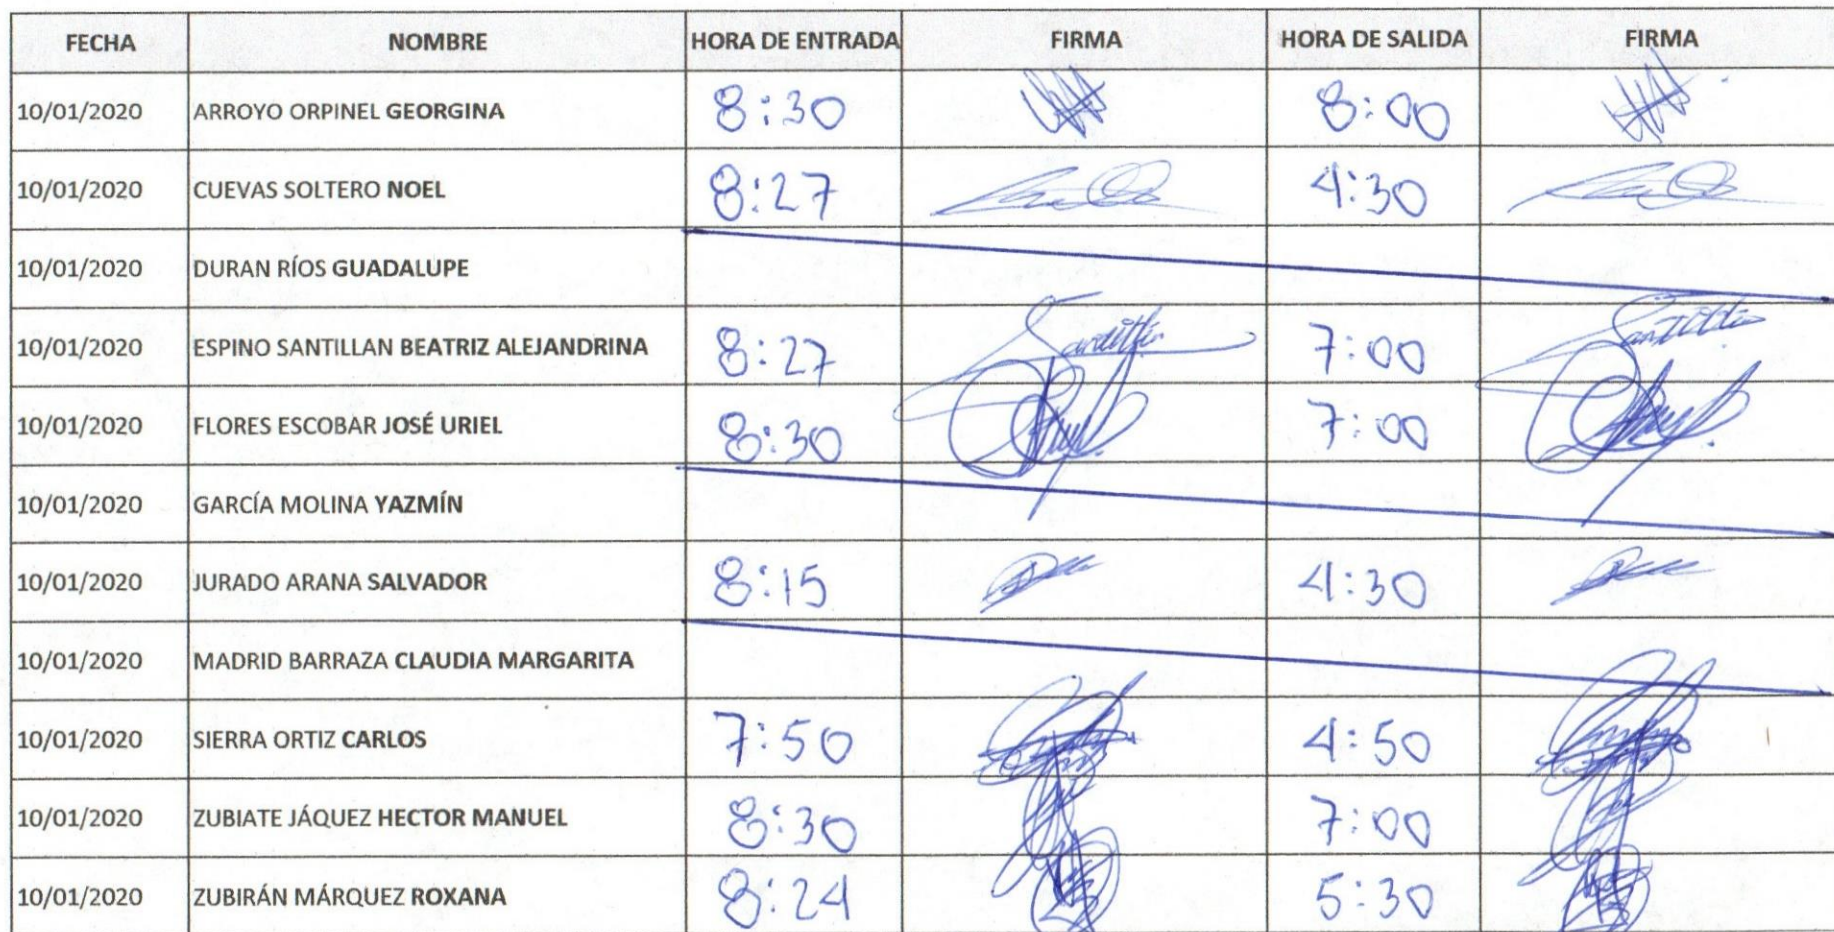 FECHA NOMBRE HORA DE ENTRADA FIRMA HORA DE SALIDA FIRMA
10/01/2020 ARROYO ORPINEL GEORGINA 8:30 8:00
10/01/2020 CUEVAS SOLTERO NOEL 8:27 4:30
10/01/2020 DURAN RÍOS GUADALUPE
10/01/2020 ESPINO SANTILLAN BEATRIZ ALEJANDRINA 8:27 7:00
10/01/2020 FLORES ESCOBAR JOSÉ URIEL 8:30 7:00
10/01/2020 GARCÍA MOLINA YAZMÍN
10/01/2020 JURADO ARANA SALVADOR 8:15 4:30
10/01/2020 MADRID BARRAZA CLAUDIA MARGARITA
10/01/2020 SIERRA ORTIZ CARLOS 7:50 4:50
10/01/2020 ZUBIATE JÁQUEZ HECTOR MANUEL 8:30 7:00
10/01/2020 ZUBIRÁN MÁRQUEZ ROXANA 8:24 5:30